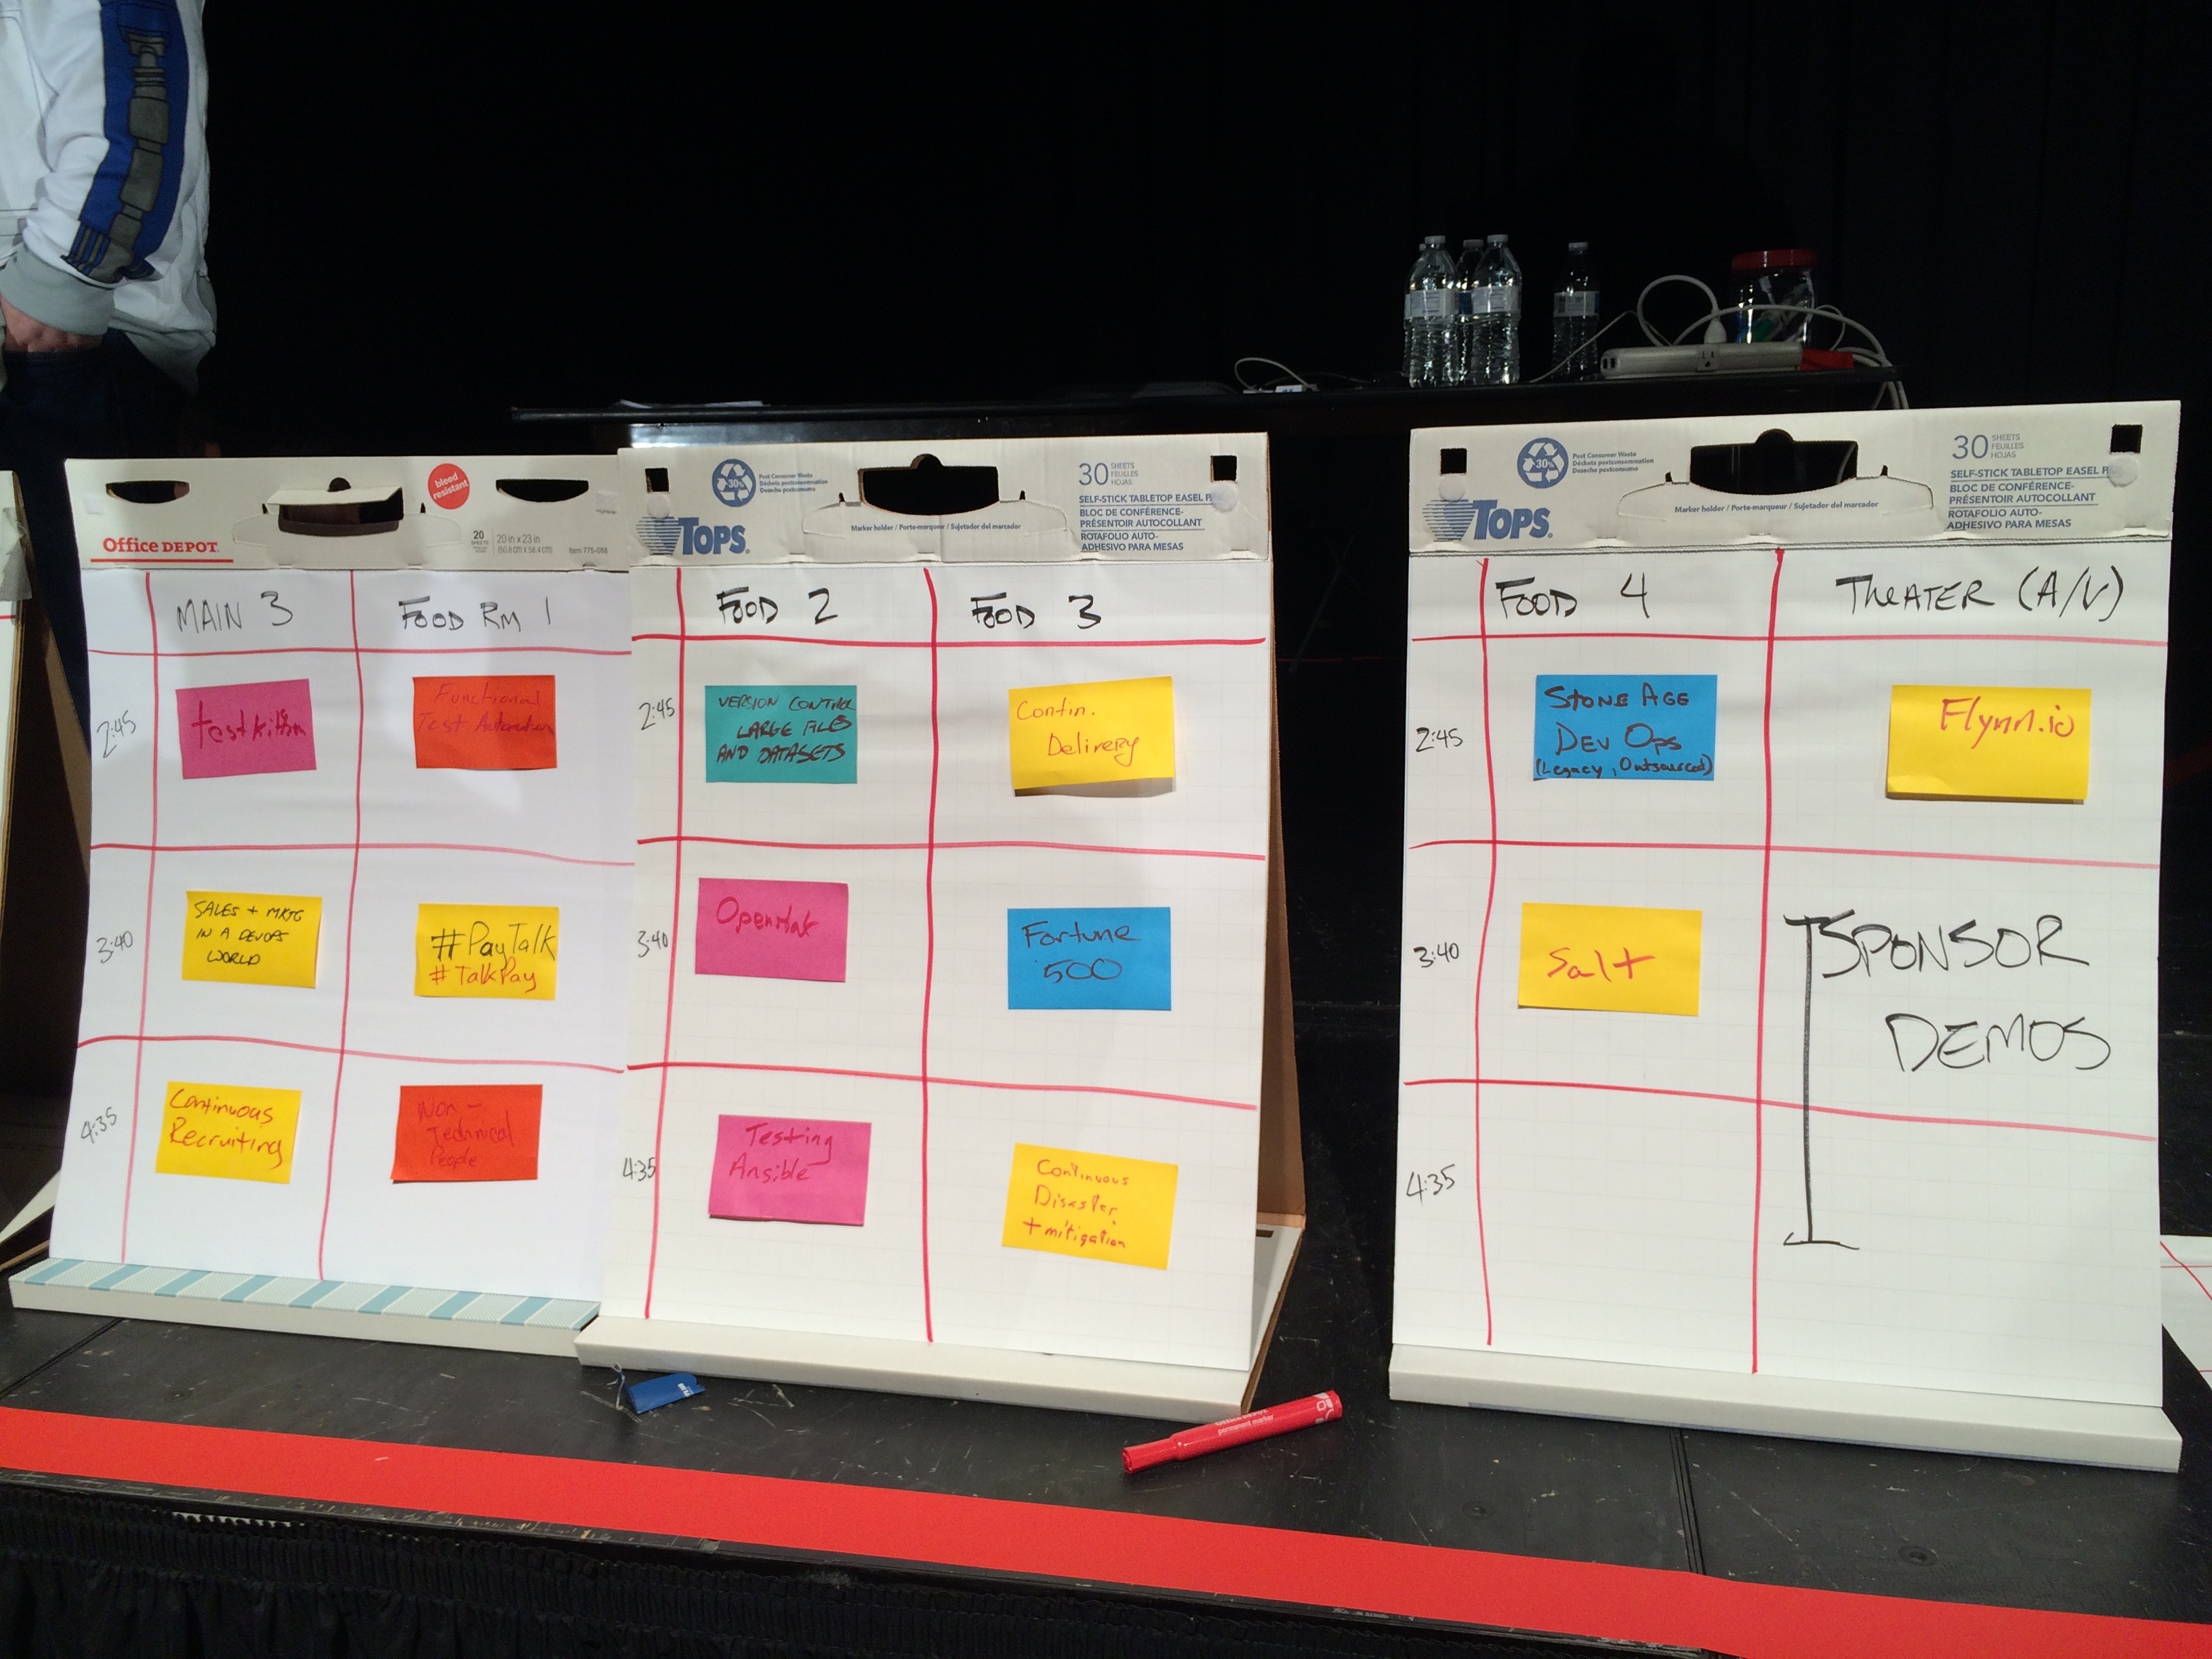 bleed
resistant
Office DEPOT.
20
SHEETS
20 in x 23 in
(50.8 cm x 58.4 cm)
Item 775-088
MAIN 3
FOOD RM 1
2:45
testkitchn
Functional
Test Automation
3:40
SALES + MKTG
IN A DEVOPS
WORLD
#PayTalk
#TalkPay
4:35
Continuous
Recruiting
Non-
Technical
People
30%
Post Consumer Waste
Déchets postconsommation
Desecho postconsumo
TOPS
Marker holder / Porte-marqueur / Sujetador del marcador
30 SHEETS
FEUILLES
HOJAS
SELF-STICK TABLETOP EASEL P
BLOC DE CONFÉRENCE-
PRÉSENTOIR AUTOCOLLANT
ROTAFOLIO AUTO-
ADHESIVO PARA MESAS
FOOD 2
FOOD 3
2:45
VERSION CONTROL
LARGE FILES
AND DATASETS
Contin.
Delivery
3:40
Fortune
500
4:35
Testing
Ansible
Continuous
Disaster
+ mitigation
30%
Post Consumer Waste
Déchets postconsommation
Desecho postconsumo
TOPS
Marker holder / Porte-marqueur / Sujetador del marcador
30 SHEETS
FEUILLES
HOJAS
SELF-STICK TABLETOP EASEL P
BLOC DE CONFÉRENCE-
PRÉSENTOIR AUTOCOLLANT
ROTAFOLIO AUTO-
ADHESIVO PARA MESAS
FOOD 4
THEATER (A/V)
2:45
STONE AGE
DEV OPS
(Legacy, Outsourced)
Flynn.io
3:40
Salt
SPONSOR
DEMOS
4:35
permanent marker